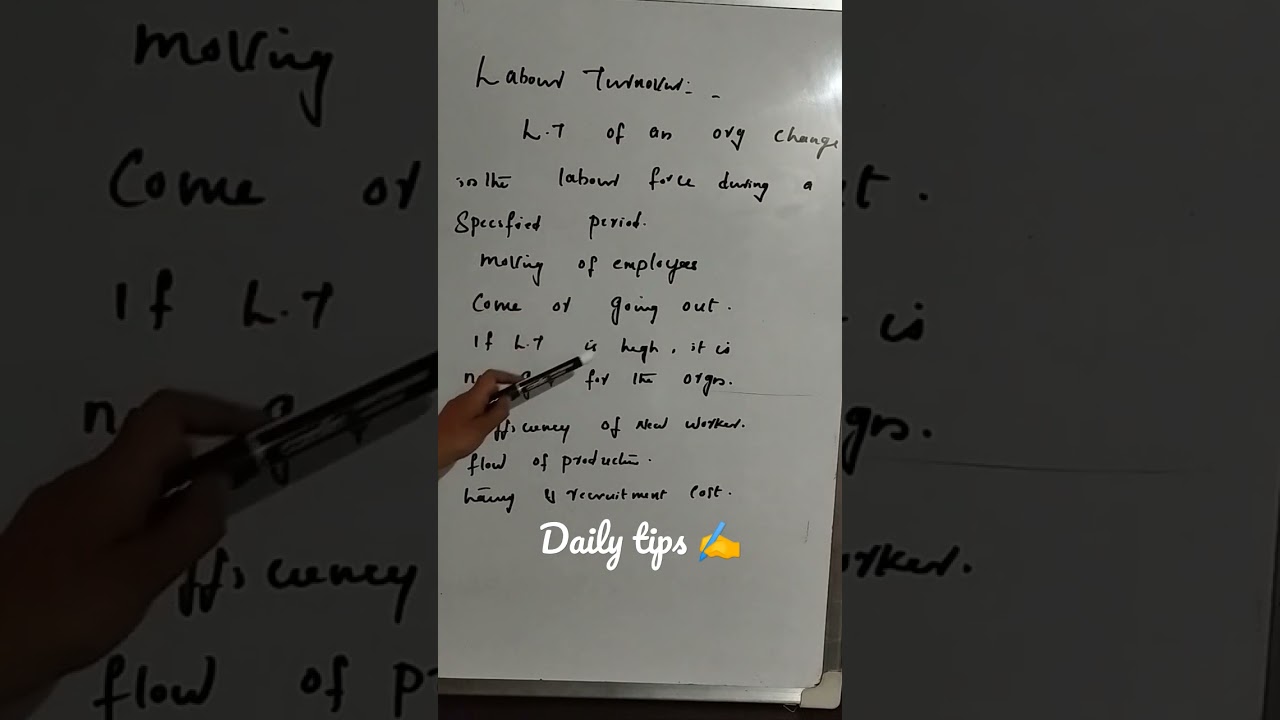 Labour Turnover:-
L.T of an org change
in the labour force during a
Specified period.
Moving of employees
Come or going out.
If L.T is high, it is
for the orgs.
of New worker.
flow of production.
hiring & recruitment Cost.
Daily tips ✍️